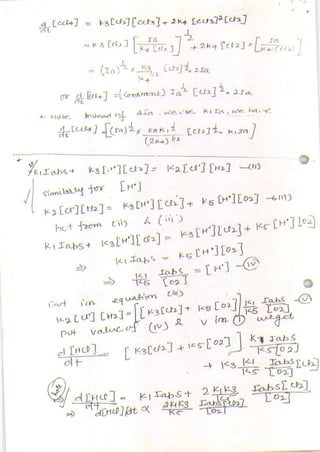 d/dt [CCl4] = k3[Cl2][CCl3] + 2k4 [CCl3]²[Cl2]
= k3[Cl2] [Ia / k4[Cl2]]^½ + 2k4[Cl2] × [Ia / k4[Cl2]]
= (Ia)^½ × k3 / k4^½ [Cl2]^½ + 2Ia
or d/dt [CCl4] = (constant) Ia^½ [Cl2]^½ + 2Ia
* Note Instead of 2Ia, we use k1Ia, we have
d/dt [CCl4] = [(Ia)^½ × k3 k1^½ / (2k4)^1/2 [Cl2]^½ + k1Ia]
k1 Iabs + k3[H•][Cl2] = k2[Cl•][H2] —(ii)
similarly for [H•]
k2[Cl•][H2] = k3[H•][Cl2] + k5[H•][O2] —(iii)
but from (ii) & (iii)
k1 Iabs + k3[H•][Cl2] = k3[H•][Cl2] + k5[H•][O2]
⇒ k1 Iabs = k5[H•][O2]
⇒ k1/k5 Iabs/[O2] = [H•] —(iv)
put in equation (iii)
k2[Cl•][H2] = [k3[Cl2] + k5[O2]] k1/k5 Iabs/[O2] —(v)
put value of (iv) & v in (i) we get
d[HCl]/dt [k3[Cl2] + k5[O2]] k1 Iabs / k5[O2]
+ k3 k1/k5 Iabs[Cl2]/[O2]
d[HCl]/dt = k1 Iabs + 2k1k3/k5 Iabs[Cl2]/[O2]
⇒ d[HCl]/dt ∝ 2k1k3/k5 Iabs[Cl2]/[O2]